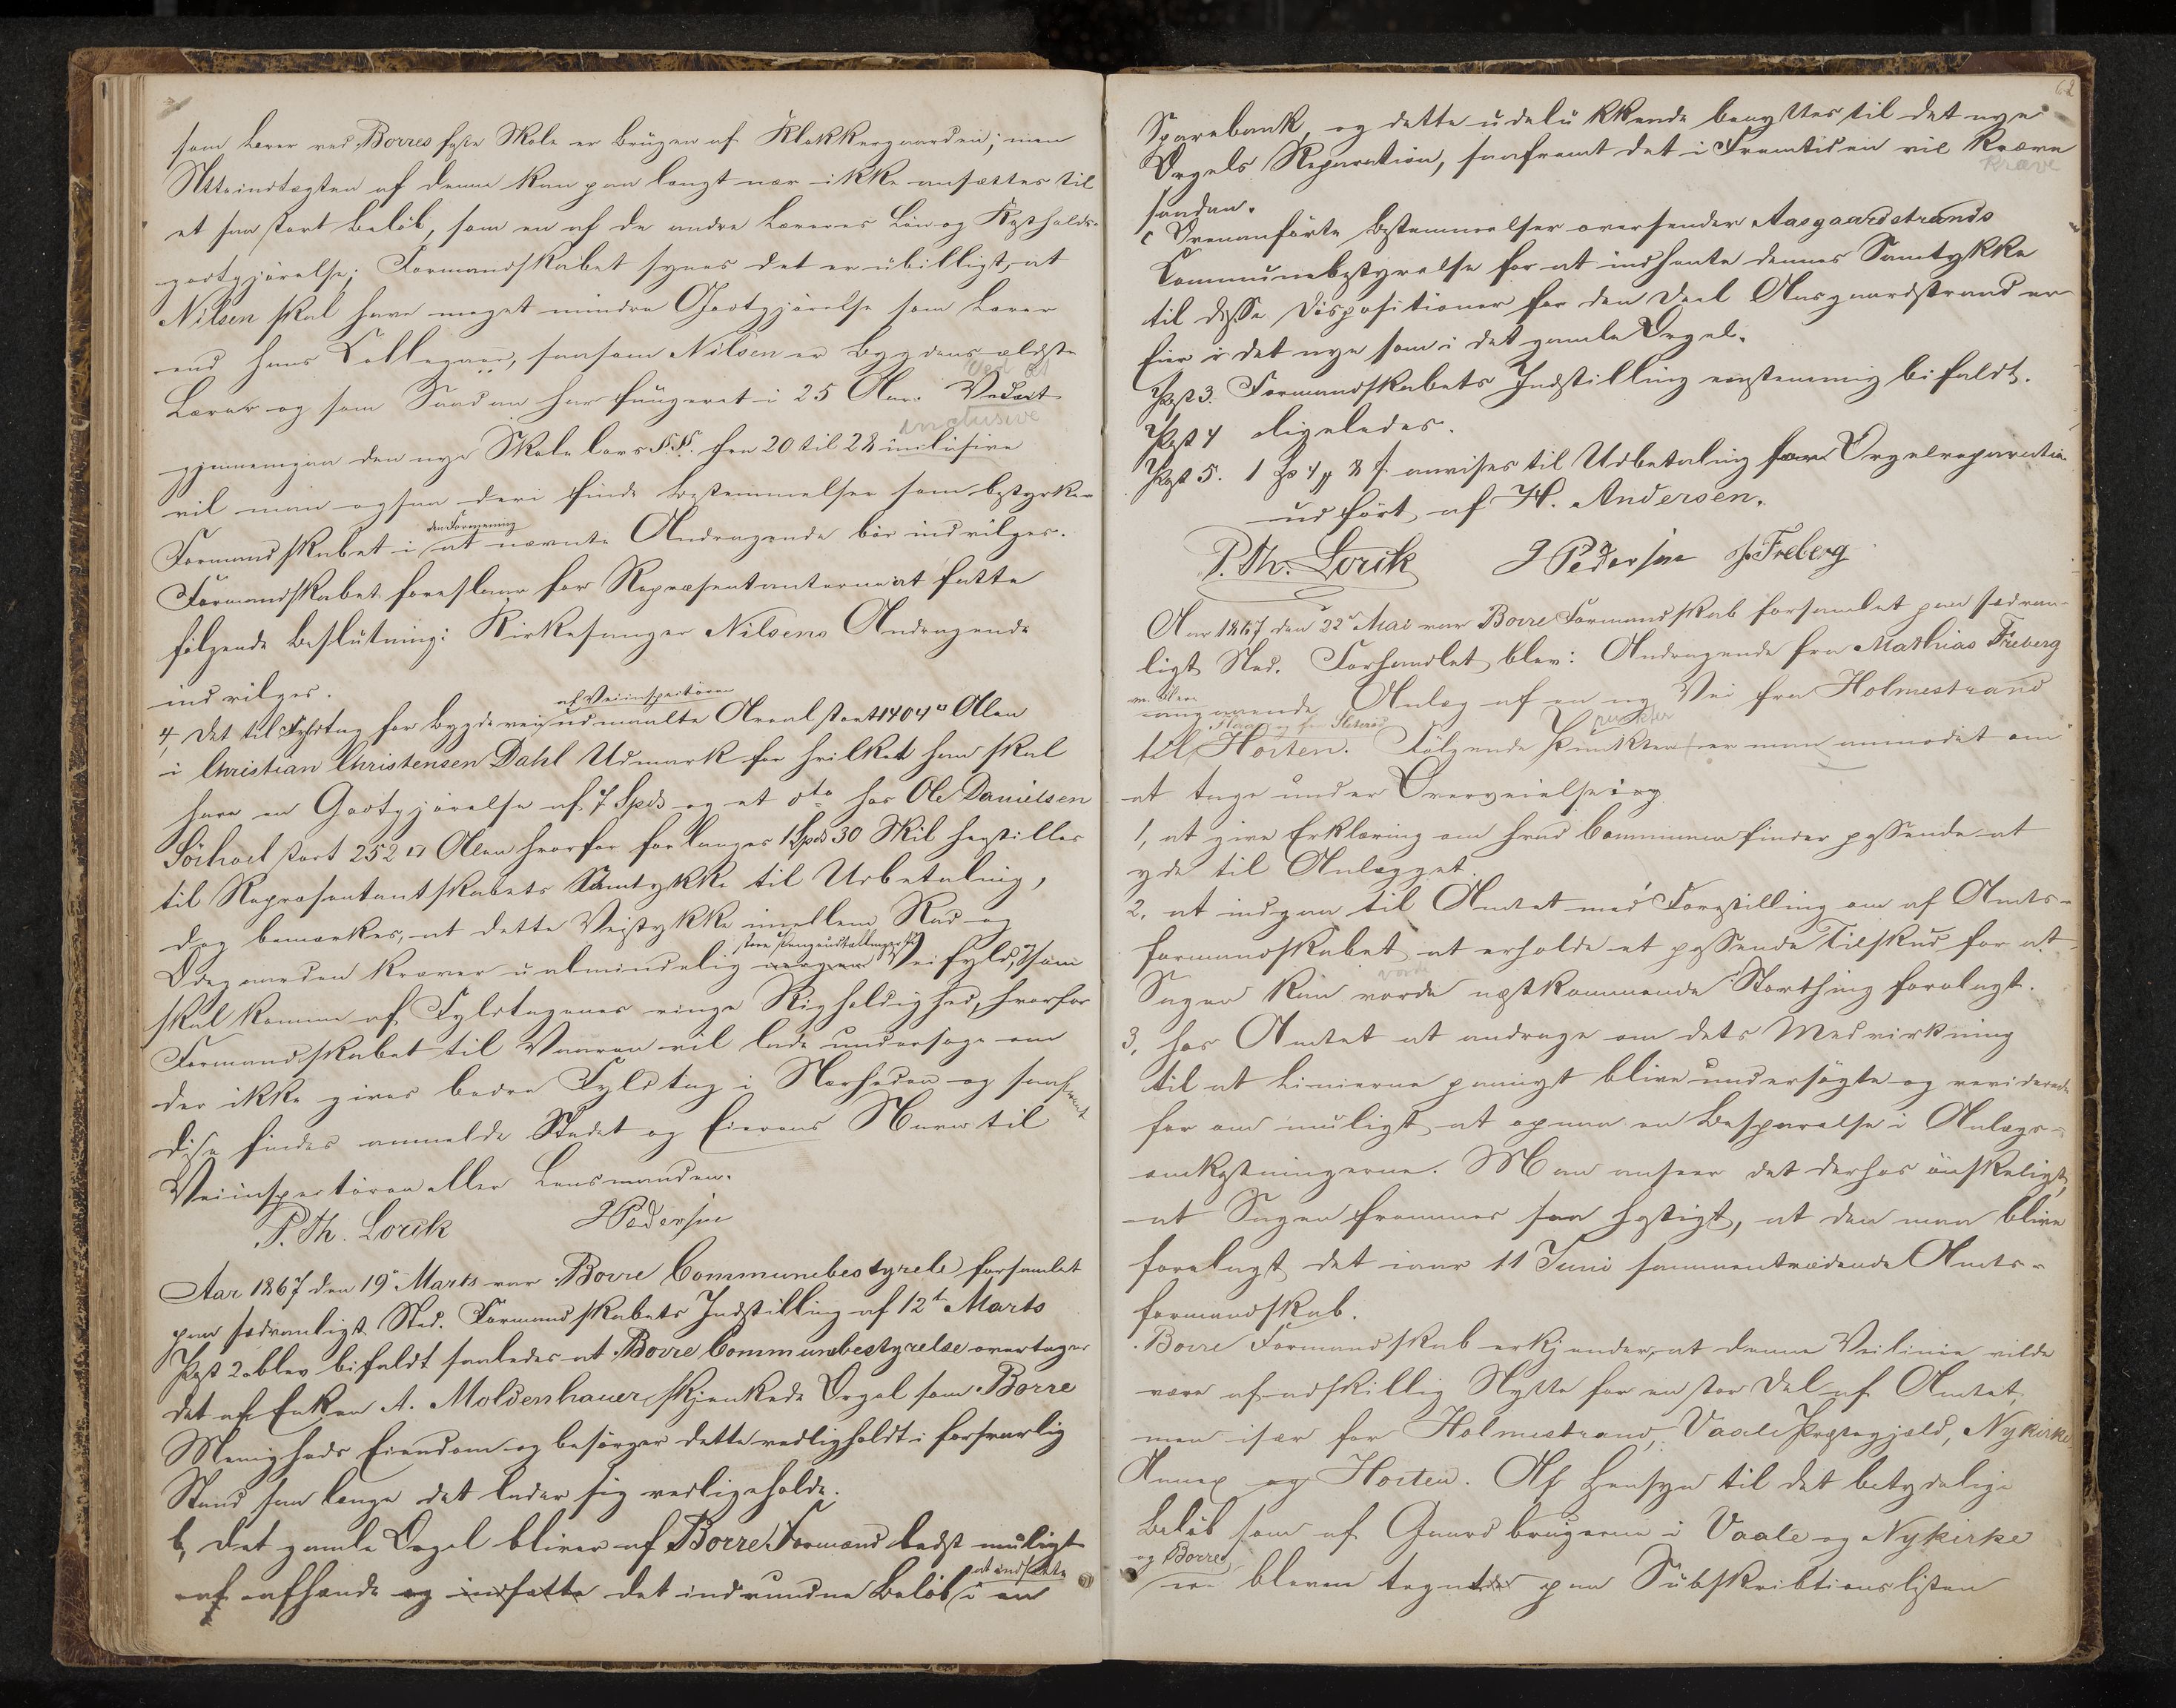 som Lærer ved Borres faste Skole er Brugen af Klokkergaarden; men
Nettoindtægten af denne kan paa langt nær ikke ansættes til
et saa stort Beløb, som en af de andre Læreres Løn og Kostholds-
godtgjørelse; Formandskabet synes det er ubilligt, at
Nilsen skal have meget mindre Godtgjørelse som Lærer
end hans Collegaer, saasom Nilsen er Bygdens ældste
Lærer og som Saadan har fungeret i 25 Aar. Ved at
Ved at
gjennemgaa den nye Skolelovs §.§. fra 20 til 28 inclusive
inclusive
vil man ogsaa deri finde Bestemmelser som bestyrker
Formandskabet i den Formening at nævnte Andragende bør indvilges.
Formandskabet foreslaar for Repræsentanterne at fatte
følgende Beslutning: Kirkesanger Nilsens Andragende
indvilges.
4, Det til Fyldtag for Bygdevei af Veiinspectøren udmaalte Areal stort 1404 □ Alen
i Christian Christensen Dahl Udmark for hvilket han skal
have en Godtgjørelse af 7 Spds og et dto hos Ole Danielsen
Sörhoel stort 252 □ Alen hvorfor forlanges 1 Spds 30 Skil henstilles
til Repræsentantskabets Samtykke til Udbetaling,
dog bemærkes, at dette Veistykke imellem Rød og
Ödegaarden kræver ualmindelig store Pengeudtællinger til Veifyld, som
skal komme af Fyldtagenes ringe Righoldighed, hvorfor
Formandskabet til Vaaren vil lade undersøge om
der ikke gives bedre Fyldtag i Nærheden og saafremt
disse findes anmelde Stedet og Eierens Navn til
Veiinspectøren eller Lensmanden.
P. Th. Lorck HPedersen
Aar 1867 den 19de Marts var Borre Communebestyrelse forsamlet
paa sædvanligt Sted. Formandskabets Indstilling af 12te Marts
Post 2 blev bifaldt saaledes at Borre Communebestyrelse overtager
det af Enken A. Moldenhauer skjænkede Orgel som Borre
Menigheds Eiendom og besørger dette vedligholdt i forsvarlig
Stand saa længe det lader sig vedligeholde.
b, Det gamle Orgel bliver af Borre Formænd bedst muligt
at afhænde og indsætte det indvundne Beløb at indsætte i en
62
Sparebank, og dette udelukkende benyttes til det nye
Orgels Reparation, saafremt det i Fremtiden vil kræve
kræve
saadan.
c Ovenanførte Bestemmelser oversendes Aasgaardstrands
Communebestyrelse for at indhente dennes Samtykke
til disse Dispositioner for den Deel Aasgaardstrand er
Eier i det nye som i det gamle Orgel.
Post 3. Formandskabets Indstilling enstemmig bifaldt.
Post 4 ligeledes.
Post 5. 1 Spd 4 ₰ 8 s. anvises til Udbetaling for Orgelreparation
udført af H. Andersen.
P. Th. Lorck HPedersen Freberg
Aar 1867 den 22de Mai var Borre Formandskab forsamlet paa sædvan-
ligt Sted. Forhandlet blev: Andragende fra Mathias Freberg
m. Flere
angaaende Anlæg af en ny Vei fra Holmestrand
til Horten. Følgende Punkter er man anmodet om
punkter
at tage under Overveielse:
1, at give Erklæring om hvad Communen finder passende at
yde til Anlægget.
2, at indgaa til Amtet med Forestilling om af Amts-
formandskabet at erholde et passende Tilskud for at
Sagen kan vorde nestkommende Storthing forelagt.
vorde
3, hos Amtet at andrage om dets Medvirkning
til at Linierne paanyt blive undersøgte og reviderede
for om muligt at opnaa en Besparelse i Anlægs-
omkostningerne. Man anseer det derhos ønskeligt,
at Sagen fremmes saa hastigt, at den maa blive
forelagt det iaar 11 Juni sammentrædende Amts-
formandskab.
Borre Formandskab erkjender, at denne Veilinie vilde
være af adskillig Nytte for en stor Del af Amtet,
men især for Holmestrand, Vaale Præstegjæld, Nykirke
Annex og Horten. Af Hensyn til det betydelige
Beløb som af Gaardbrugerne i Vaale og Nykirke
og Borre
ere blevne tegnede paa Subskriptionslisten